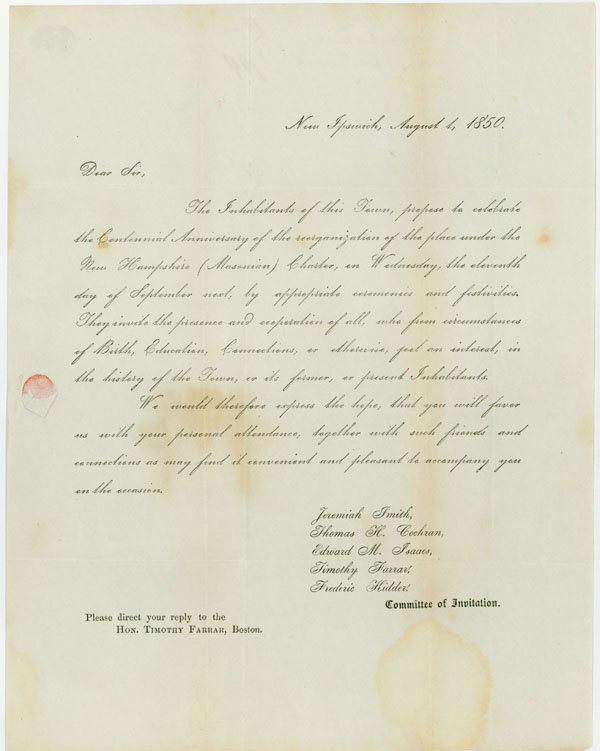 New Ipswich, August 1, 1850.
Dear Sir,
The Inhabitants of this Town, propose to celebrate
the Centennial Anniversary of the reorganization of the place under the
New Hampshire (Masonian) Charter, on Wednesday, the eleventh
day of September next, by appropriate ceremonies and festivities.
They invite the presence and cooperation of all, who from circumstances
of Birth, Education, Connections, or otherwise, feel an interest, in
the history of the Town, or its former, or present Inhabitants.
We would therefore express the hope, that you will favor
us with your personal attendance, together with such friends and
connections as may find it convenient and pleasant to accompany you
on the occasion.
Jeremiah Smith,
Thomas H. Cochran,
Edward M. Isaacs,
Timothy Farrar,
Frederic Kidder.
Committee of Invitation.
Please direct your reply to the
HON. TIMOTHY FARRAR, Boston.